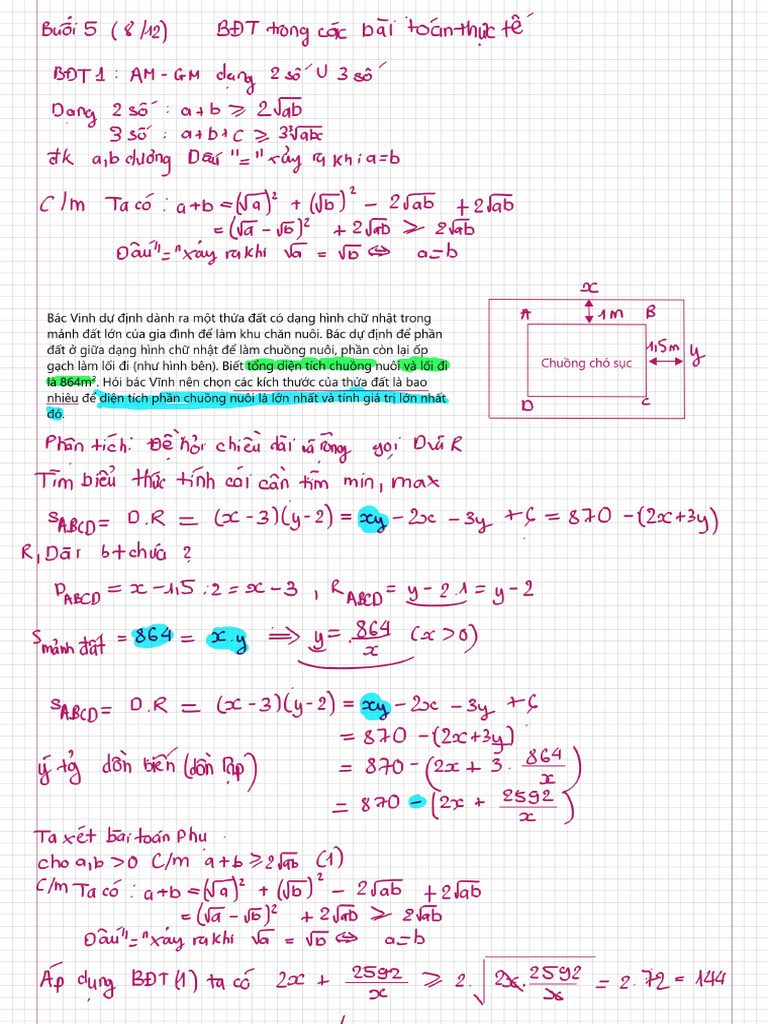 Buổi 5 (8/12) BĐT trong các bài toán thực tế
BĐT 1 : AM-GM dạng 2 số U 3 số
Dạng 2 số : a+b ≥ 2√ab
3 số : a+b+c ≥ 3∛abc
đk a,b dương Dấu "=" xảy ra khi a=b
C/m Ta có : a+b = (√a)² + (√b)² - 2√ab + 2√ab
= (√a - √b)² + 2√ab ≥ 2√ab
Dấu "=" xảy ra khi √a = √b ⇔ a=b
Bác Vinh dự định dành ra một thửa đất có dạng hình chữ nhật trong
mảnh đất lớn của gia đình để làm khu chăn nuôi. Bác dự định để phần
đất ở giữa dạng hình chữ nhật để làm chuồng nuôi, phần còn lại ốp
gạch làm lối đi (như hình bên). Biết tổng diện tích chuồng nuôi và lối đi
là 864m². Hỏi bác Vĩnh nên chọn các kích thước của thửa đất là bao
nhiêu để diện tích phần chuồng nuôi là lớn nhất và tính giá trị lớn nhất
đó.
x
A 1m B
1,5m y
Chuồng chó sục
D C
Phân tích: Đề hỏi chiều dài và rộng gọi D và R
Tìm biểu thức tính cái cần tìm min, max
S_ABCD = D.R = (x-3)(y-2) = xy - 2x - 3y + 6 = 870 - (2x+3y)
R, Dài bt chưa ?
D_ABCD = x - 1,5.2 = x - 3 , R_ABCD = y - 2.1 = y - 2
S_mảnh đất = 864 = x.y ⟹ y = 864/x (x>0)
S_ABCD = D.R = (x-3)(y-2) = xy - 2x - 3y + 6
= 870 - (2x+3y)
ý tg dồn biến (dồn ẩn) = 870 - (2x + 3. 864/x)
= 870 - (2x + 2592/x)
Ta xét bài toán phụ
cho a,b >0 C/m a+b ≥ 2√ab (1)
C/m Ta có : a+b = (√a)² + (√b)² - 2√ab + 2√ab
= (√a - √b)² + 2√ab ≥ 2√ab
Dấu "=" xảy ra khi √a = √b ⇔ a=b
Áp dụng BĐT (1) ta có 2x + 2592/x ≥ 2.√(2x.2592/x) = 2.72 = 144